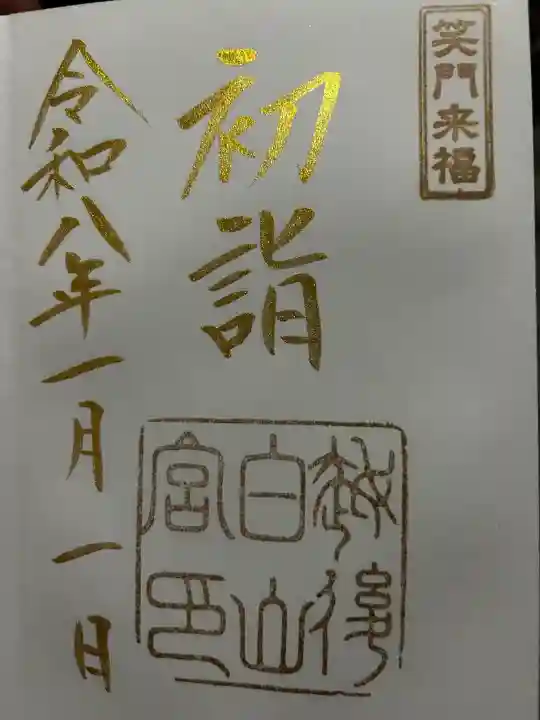 笑門来福
初詣
越後
白山
宮印
令和八年一月一日